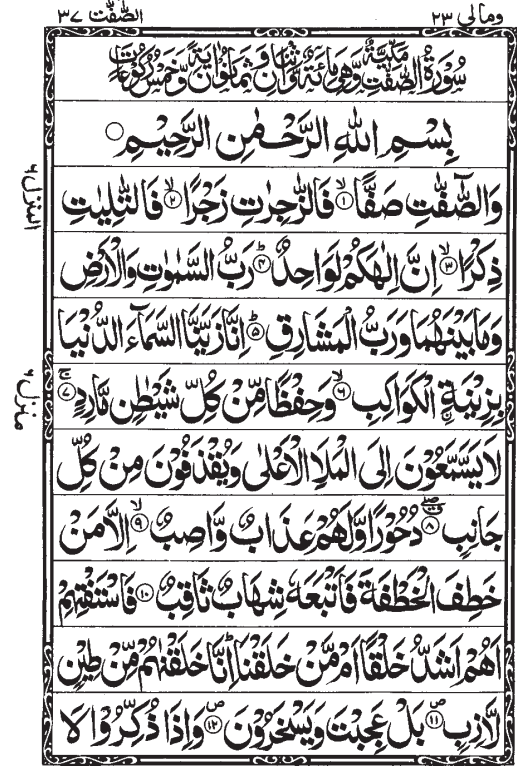 وَمَا لِیَ ۲۳
الصّٰٓفّٰت ۳۷
سُوْرَةُ الصّٰٓفّٰتِ مَكِّيَّةٌ وَّهِيَ مِائَةٌ وَّاثْنَانِ وَثَمَانُوْنَ اٰيَةً وَّخَمْسُ رُكُوْعَاتٍ
بِسْمِ اللهِ الرَّحْمٰنِ الرَّحِيْمِ ○
وَالصّٰٓفّٰتِ صَفًّا ۙ﴿۱﴾ فَالزّٰجِرٰتِ زَجْرًا ۙ﴿۲﴾ فَالتّٰلِيٰتِ
ذِكْرًا ۙ﴿۳﴾ اِنَّ اِلٰهَكُمْ لَوَاحِدٌ ؕ﴿۴﴾ رَبُّ السَّمٰوٰتِ وَالْاَرْضِ
وَمَا بَيْنَهُمَا وَرَبُّ الْمَشَارِقِ ؕ﴿۵﴾ اِنَّا زَيَّنَّا السَّمَآءَ الدُّنْيَا
بِزِيْنَةِ ۨالْكَوَاكِبِ ۙ﴿۶﴾ وَحِفْظًا مِّنْ كُلِّ شَيْطٰنٍ مَّارِدٍ ۚ﴿۷﴾
لَا يَسَّمَّعُوْنَ اِلَى الْمَلَاِ الْاَعْلٰى وَيُقْذَفُوْنَ مِنْ كُلِّ
جَانِبٍ ۖ﴿۸﴾ دُحُوْرًا وَّلَهُمْ عَذَابٌ وَّاصِبٌ ۙ﴿۹﴾ اِلَّا مَنْ
خَطِفَ الْخَطْفَةَ فَاَتْبَعَهٗ شِهَابٌ ثَاقِبٌ ﴿۱۰﴾ فَاسْتَفْتِهِمْ
اَهُمْ اَشَدُّ خَلْقًا اَمْ مَّنْ خَلَقْنَا ؕ اِنَّا خَلَقْنٰهُمْ مِّنْ طِيْنٍ
لَّازِبٍ ﴿۱۱﴾ بَلْ عَجِبْتَ وَيَسْخَرُوْنَ ۪﴿۱۲﴾ وَاِذَا ذُكِّرُوْا لَا
المنزل ۶
منزل ۶